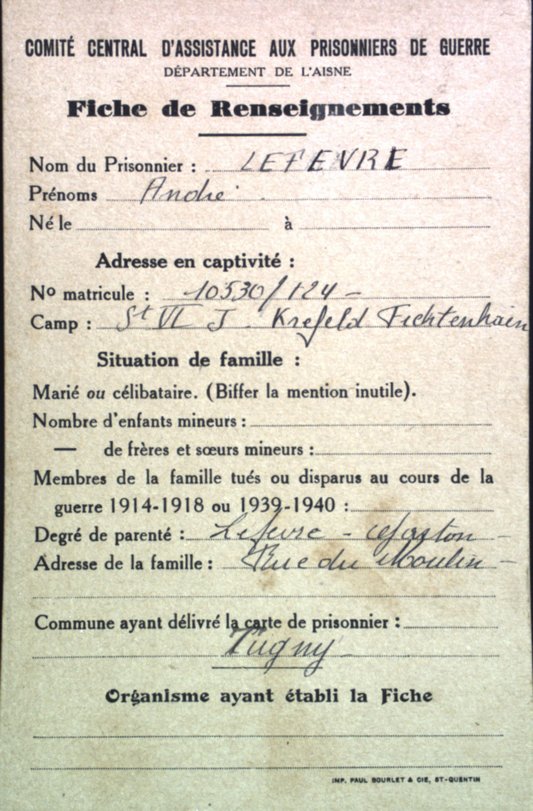 COMITÉ CENTRAL D'ASSISTANCE AUX PRISONNIERS DE GUERRE
DÉPARTEMENT DE L'AISNE
Fiche de Renseignements
Nom du Prisonnier : LEFEVRE
Prénoms André
Né le à
Adresse en captivité :
No matricule : 10530/124 -
Camp : St VI J. Krefeld Fichtenhain
Situation de famille :
Marié ou célibataire. (Biffer la mention inutile).
Nombre d'enfants mineurs :
— de frères et sœurs mineurs :
Membres de la famille tués ou disparus au cours de la
guerre 1914-1918 ou 1939-1940 :
Degré de parenté : Lefevre - Gaston -
Adresse de la famille : Rue du Moulin -
Commune ayant délivré la carte de prisonnier :
Tugny -
Organisme ayant établi la Fiche
IMP. PAUL BOURLET & CIE, ST-QUENTIN